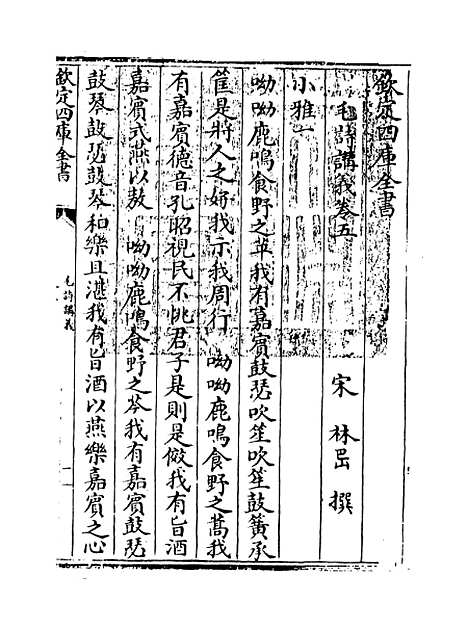 欽定四庫全書
毛詩講義卷五
宋 林岊 撰
小雅
呦呦鹿鳴食野之苹我有嘉賓鼓瑟吹笙吹笙鼓簧承
筐是將人之好我示我周行 呦呦鹿鳴食野之蒿我
有嘉賓德音孔昭視民不恌君子是則是傚我有旨酒
嘉賓式燕以敖 呦呦鹿鳴食野之芩我有嘉賓鼓瑟
鼓琴鼓瑟鼓琴和樂且湛我有旨酒以燕樂嘉賓之心
欽定四庫全書
毛詩講義
一